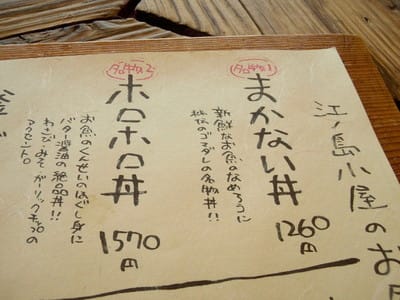 江ノ島小屋のお
名物1
まかない丼
新鮮なお魚のなめろうに
秘伝のゴマダレの名物丼!!
1260円
名物2
ホロホロ丼
お魚のくんせいのほぐし身に
バター醤油の絶品丼!!
わさびみそガーリックチップの
アクセント◎
1570円